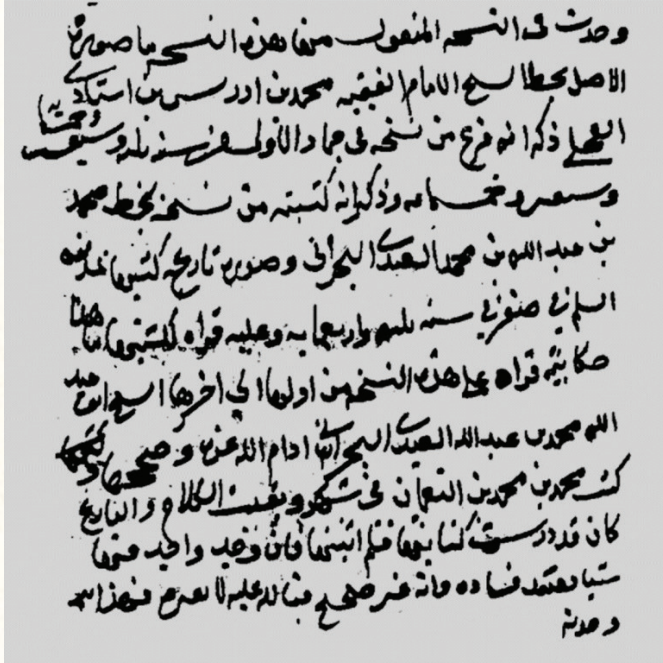 وجدت فى النسخه المنقول منها هذه النسخه ما صورته
الاصل بخط الشيخ الامام الفقيه محمد بن ادريس بن
العجلى ذكر انه فرغ من نسخه فى جماد الاولى من سنه ثلاث وسبعين
وخمسمايه وذكر انه كتبته من نسخه بخط محمد
بن عبد الله بن محمد السعيدى البحرانى وصورة تاريخه كتبها
فى صفر فى سنه واربعمايه وعليه قراه هذا
حكايته قراه على هذه النسخه من اولها الى اخرها الشيخ عبد
الله محمد بن عبد الله السعيدى البحرانى ادام الله عزه وصححها
كتب محمد بن محمد بن النعمان فى شهر الكلام والتاريخ
كان قد درست كتابتها فلم اثبتها فان وجد واجد فيها
شيا يعتقد فساده وانه غير صحيح فهذا
وجدته